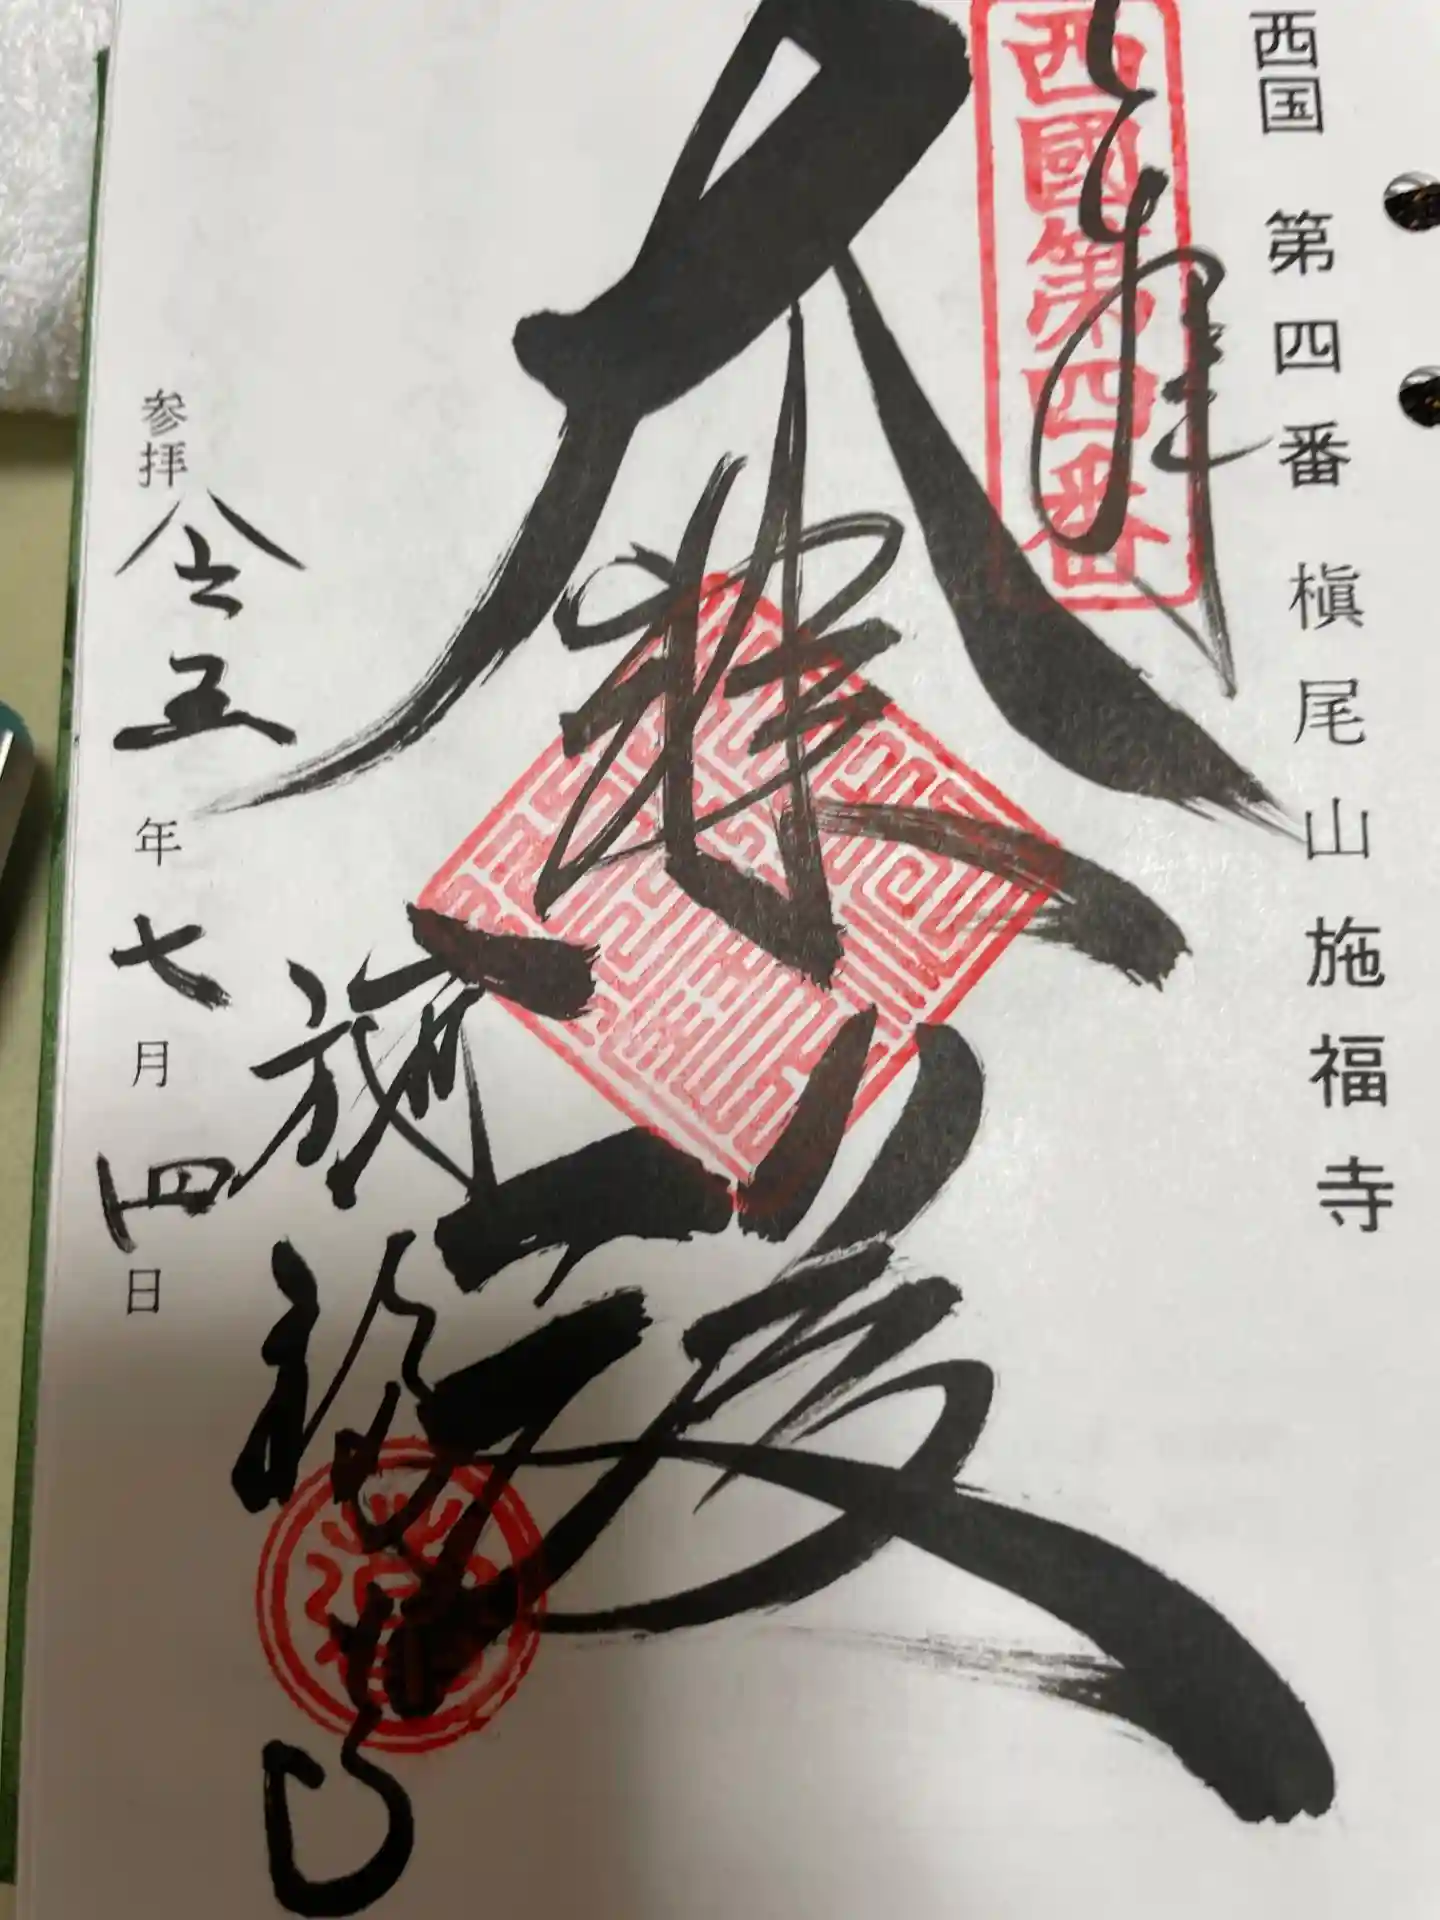 西国 第四番 槇尾山施福寺
奉拝
西國第四番
大悲殿
施福寺
参拝 令五年七月四日